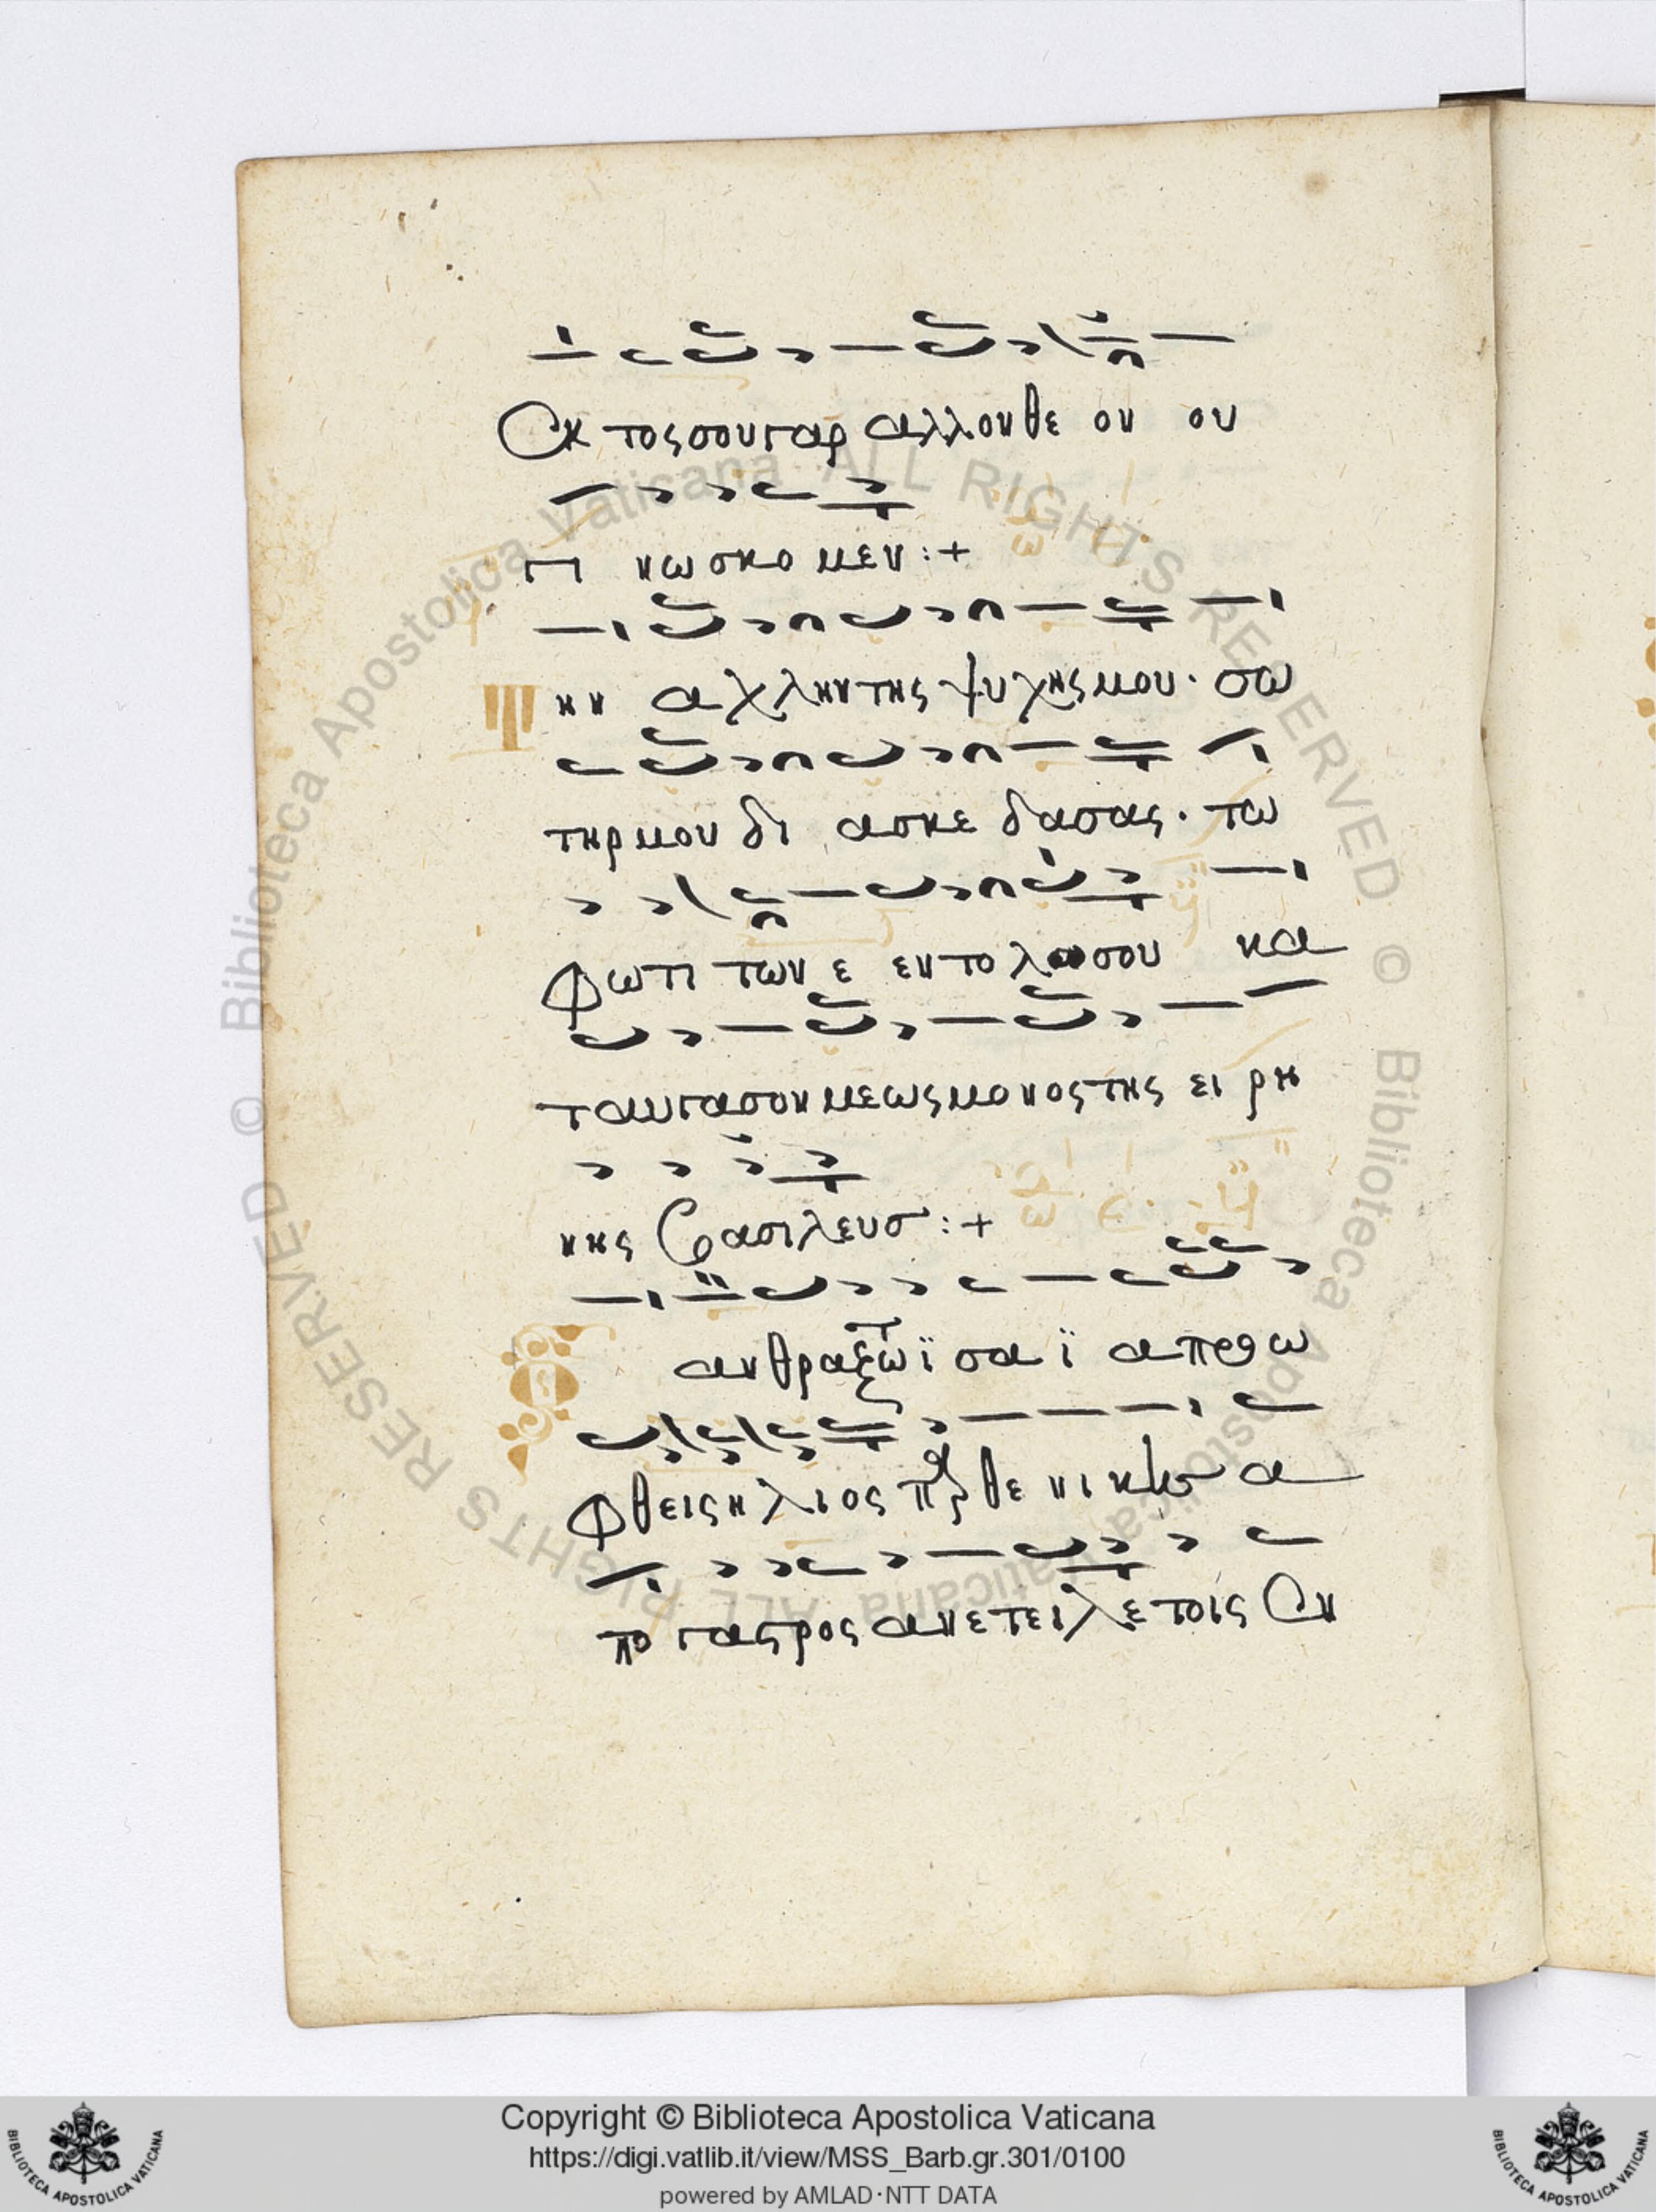 Εκ τος σου γαρ αλλον θε ον ου
γι νωσκο μεν :+
Τ ην αχλην της ψυχης μου · σω
τηρ μου δι ασκε δασας · τω
φωτι των ε εντο λω σου κα
ταυγασον με ως μονος της ει ρη
νης βασιλευσ :+
ανθραξ τω ϊ σα ϊ α προ ω
φθεις ηλιος παρθε νι κης α
πο γαστρος ανετειλε τοις εν
© Biblioteca Apostolica Vaticana ALL RIGHTS RESERVED © Biblioteca Apostolica Vaticana ALL RIGHTS RESERVED
Copyright © Biblioteca Apostolica Vaticana
https://digi.vatlib.it/view/MSS_Barb.gr.301/0100
powered by AMLAD·NTT DATA
BIBLIOTECA APOSTOLICA VATICANA
BIBLIOTECA APOSTOLICA VATICANA